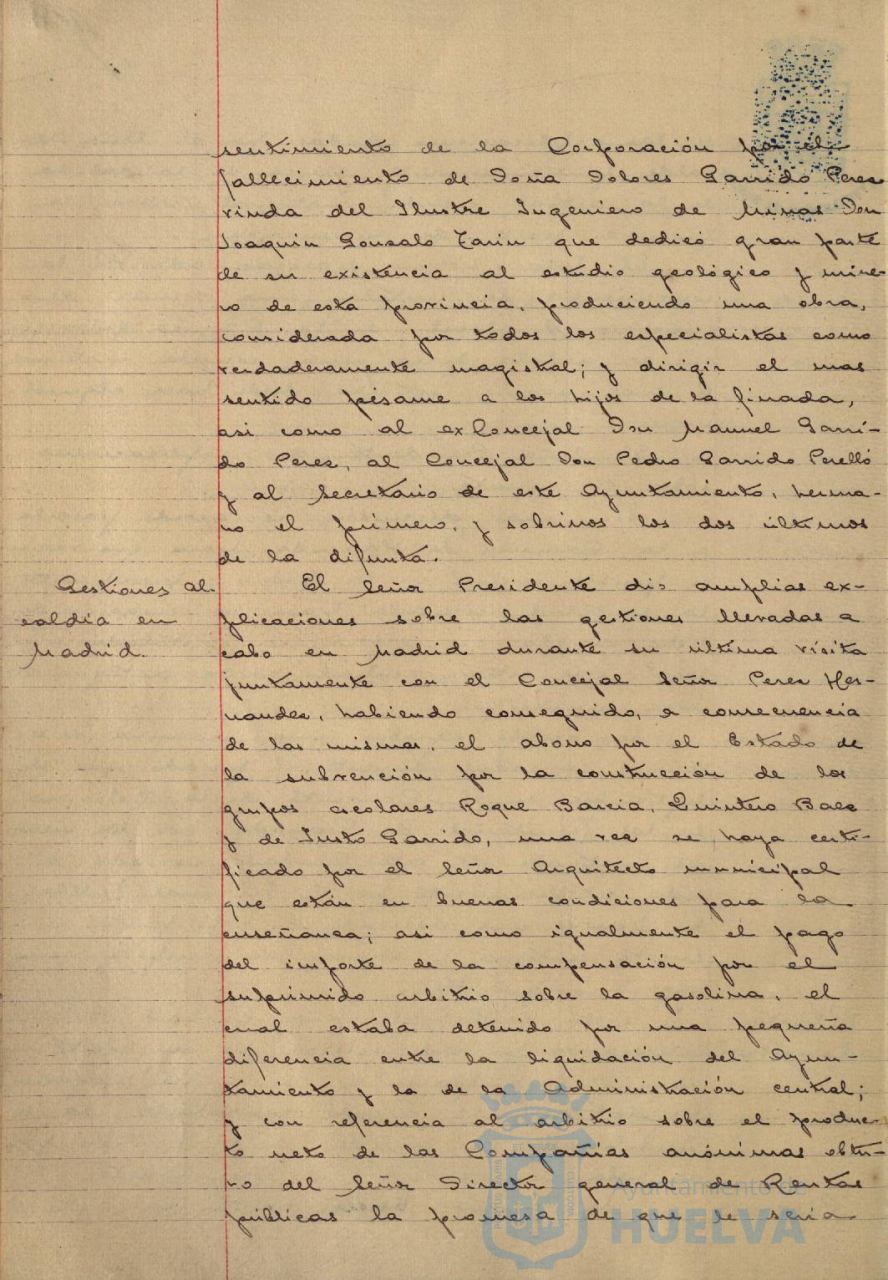 sentimiento de la Corporación por el
fallecimiento de Doña Dolores Garrido Perez
viuda del Ilustre Ingeniero de Minas Don
Joaquin Gonzalo Tarin que dedicó gran parte
de su existencia al estudio geológico y mine-
ro de esta provincia, produciendo una obra,
considerada por todos los especialistas como
verdaderamente magistral; y dirigir el mas
sentido pésame a los hijos de la finada,
asi como al exConcejal Don Manuel Garri-
do Perez, al Concejal Don Pedro Garrido Perelló
y al Secretario de este Ayuntamiento, herma-
no el primero, y sobrinos los dos últimos
de la difunta.
Gestiones al-
caldia en
Madrid.
El Señor Presidente dió amplias ex-
plicaciones sobre las gestiones llevadas a
cabo en Madrid durante su última visita
juntamente con el Concejal Señor Perez Her-
nandez, habiendo conseguido, a consecuencia
de las mismas, el abono por el Estado de
la subvención por la construcción de los
grupos escolares Roque Barcia, Quintero Baez
y de Justo Garrido, una vez se haya certi-
ficado por el Señor Arquitecto municipal
que están en buenas condiciones para la
enseñanza; asi como igualmente el pago
del importe de la compensación por el
suprimido arbitrio sobre la gasolina, el
cual estaba detenido por una pequeña
diferencia entre la liquidación del Ayun-
tamiento y la de la Administración central;
y con referencia al arbitrio sobre el produc-
to neto de las Compañias anónimas obtu-
vo del Señor Director general de Rentas
públicas la promesa de que le seria
Ayuntamiento de
HUELVA